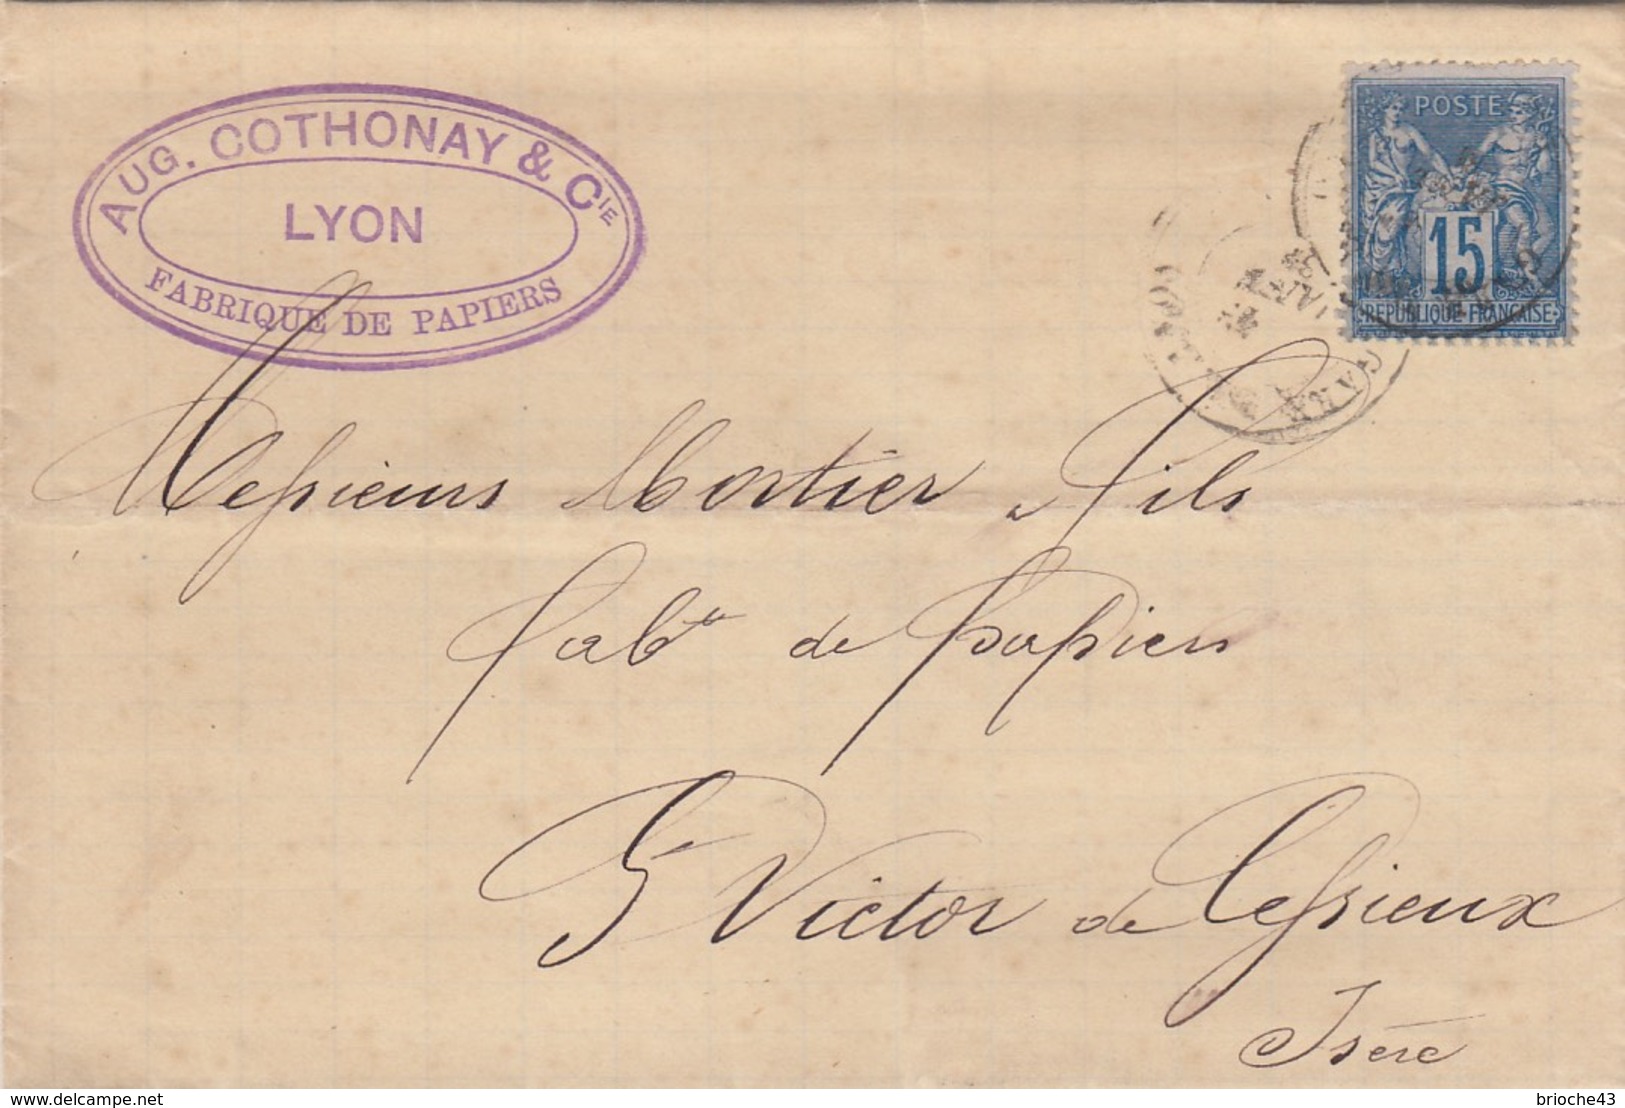 AUG. COTHONAY & CIE
LYON
FABRIQUE DE PAPIERS
POSTE
15
REPUBLIQUE FRANÇAISE
GARE
JANV
Messieurs Mortier & Fils
fabts de papiers
St Victor de Cessieux
Isère
delcampe.net
brioche43